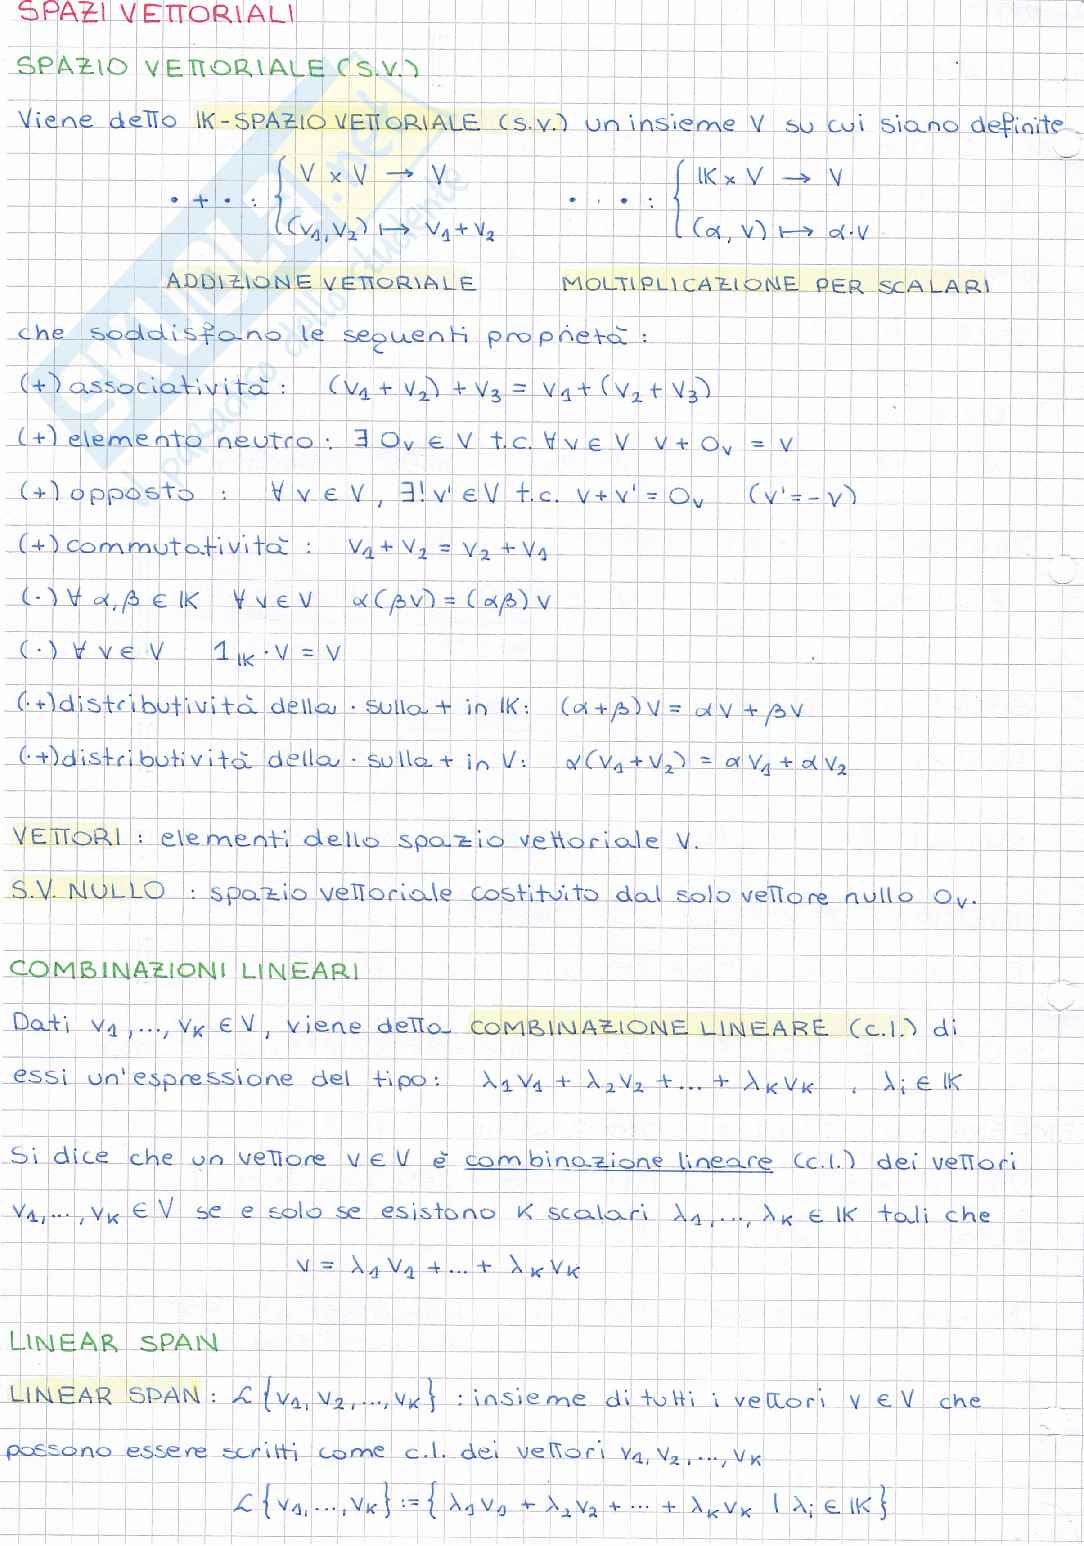 SPAZI VETTORIALI
SPAZIO VETTORIALE (S.V.)
Viene detto IK-SPAZIO VETTORIALE (S.V.) un insieme V su cui siano definite
• + • : { V × V → V
(v₁, v₂) ↦ v₁ + v₂
• · • : { IK × V → V
(α, v) ↦ α·v
ADDIZIONE VETTORIALE MOLTIPLICAZIONE PER SCALARI
che soddisfano le seguenti proprietà:
(+) associatività: (v₁ + v₂) + v₃ = v₁ + (v₂ + v₃)
(+) elemento neutro: ∃ 0ᵥ ∈ V t.c. ∀ v ∈ V v + 0ᵥ = v
(+) opposto : ∀ v ∈ V, ∃! v' ∈ V t.c. v + v' = 0ᵥ (v' = -v)
(+) commutatività: v₁ + v₂ = v₂ + v₁
(·) ∀ α, β ∈ IK ∀ v ∈ V α(βv) = (αβ)v
(·) ∀ v ∈ V 1_IK · v = v
(·+) distributività della · sulla + in IK: (α+β)v = αv + βv
(·+) distributività della · sulla + in V: α(v₁ + v₂) = αv₁ + αv₂
VETTORI : elementi dello spazio vettoriale V.
S.V. NULLO : spazio vettoriale costituito dal solo vettore nullo 0ᵥ.
COMBINAZIONI LINEARI
Dati v₁, ..., vₖ ∈ V, viene detta COMBINAZIONE LINEARE (c.l.) di
essi un'espressione del tipo: λ₁v₁ + λ₂v₂ + ... + λₖvₖ , λᵢ ∈ IK
Si dice che un vettore v ∈ V è combinazione lineare (c.l.) dei vettori
v₁, ..., vₖ ∈ V se e solo se esistono K scalari λ₁, ..., λₖ ∈ IK tali che
v = λ₁v₁ + ... + λₖvₖ
LINEAR SPAN
LINEAR SPAN : ℒ{v₁, v₂, ..., vₖ} : insieme di tutti i vettori v ∈ V che
possono essere scritti come c.l. dei vettori v₁, v₂, ..., vₖ
ℒ{v₁, ..., vₖ} := {λ₁v₁ + λ₂v₂ + ... + λₖvₖ | λᵢ ∈ IK}